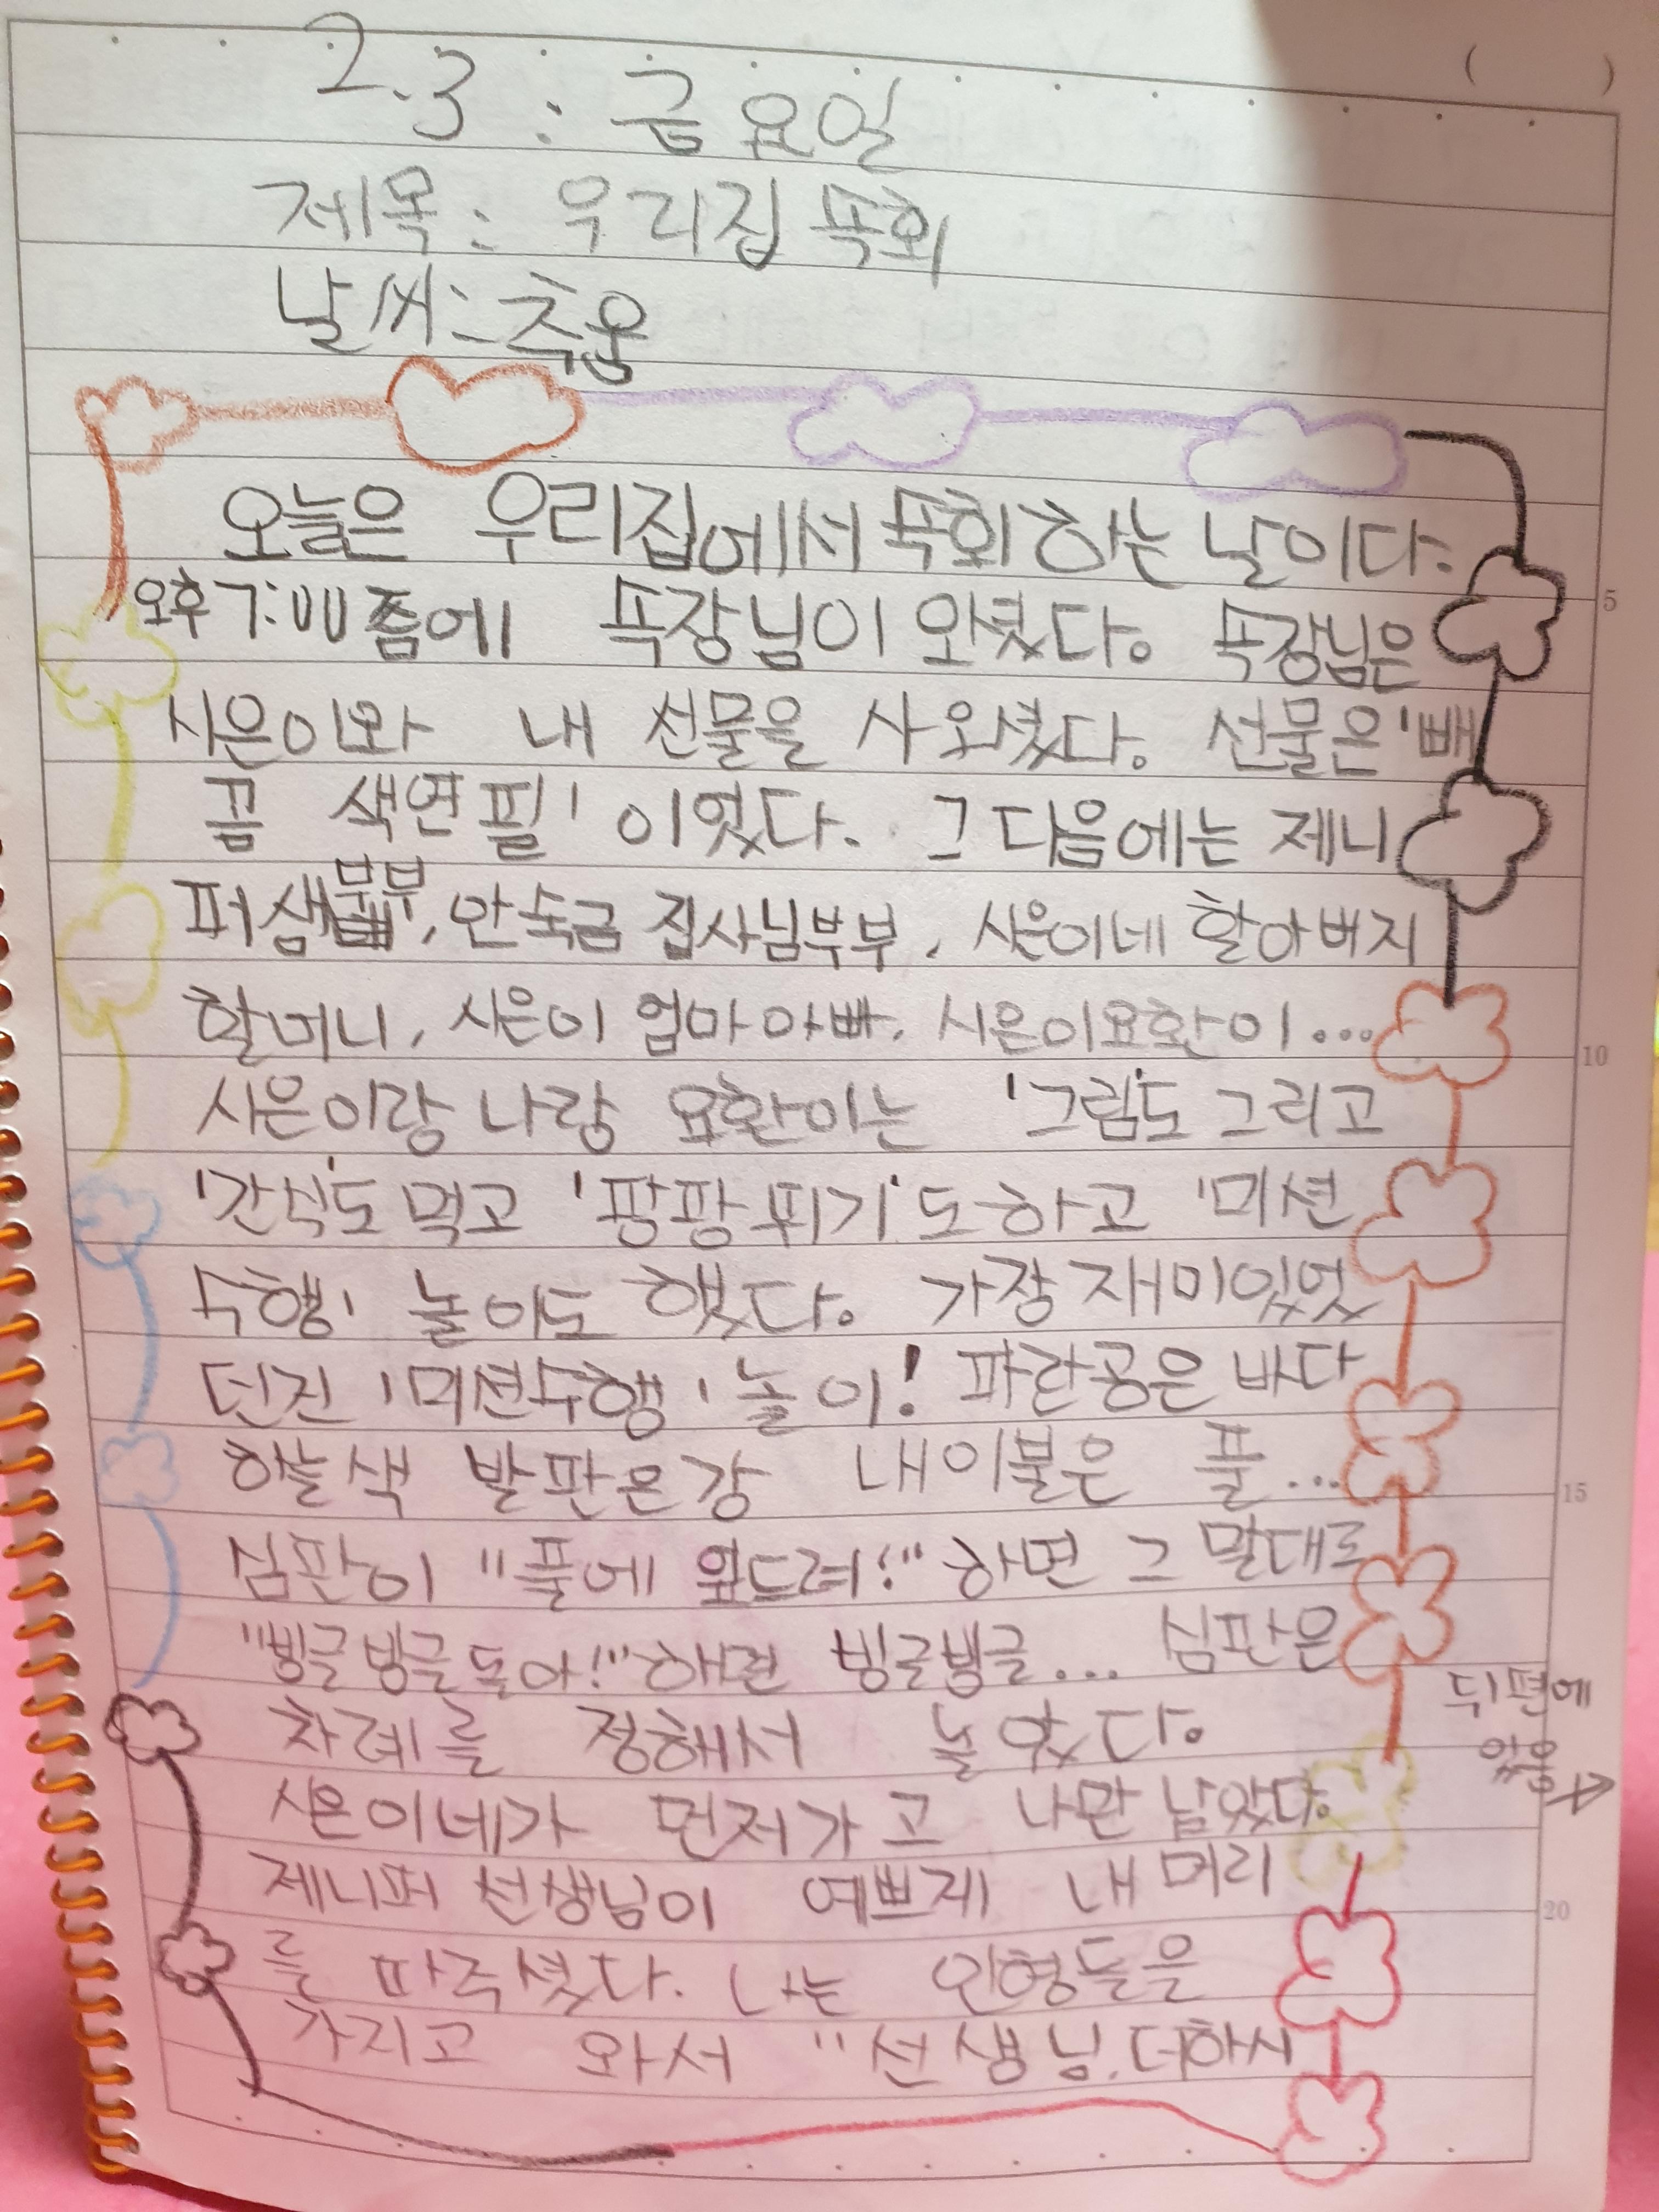 2.3 : 금요일
제목: 우리집 목회
날씨: 추움
오늘은 우리집에서 목회 하는 날이다.
오후 7:00 쯤에 목장님이 오셨다. 목장님은
시은이와 내 선물을 사 오셨다. 선물은 '빼
꼼 색연필' 이었다. 그 다음에는 제니
퍼샘부부, 안숙금 집사님부부, 시은이네 할아버지
할머니, 시은이 엄마 아빠, 시은이요환이...
시은이랑 나랑 요환이는 '그림'도 그리고
'간식'도 먹고 '팡팡 뛰기'도 하고 '미션
수행' 놀이도 했다. 가장 재미있었
던건 '미션수행' 놀이! 파란공은 바다
하늘색 발판은 강 내 이불은 풀...
심판이 "풀에 엎드려!" 하면 그 말대로
"빙글빙글 돌아!" 하면 빙글빙글... 심판은
차례를 정해서 놀았다.
시은이네가 먼저가고 나만 남았다.
제니퍼 선생님이 예쁘게 내 머리
를 따주셨다. 나는 인형들을
가지고 와서 "선생님, 더하시
뒤편에
있음
5
10
15
20